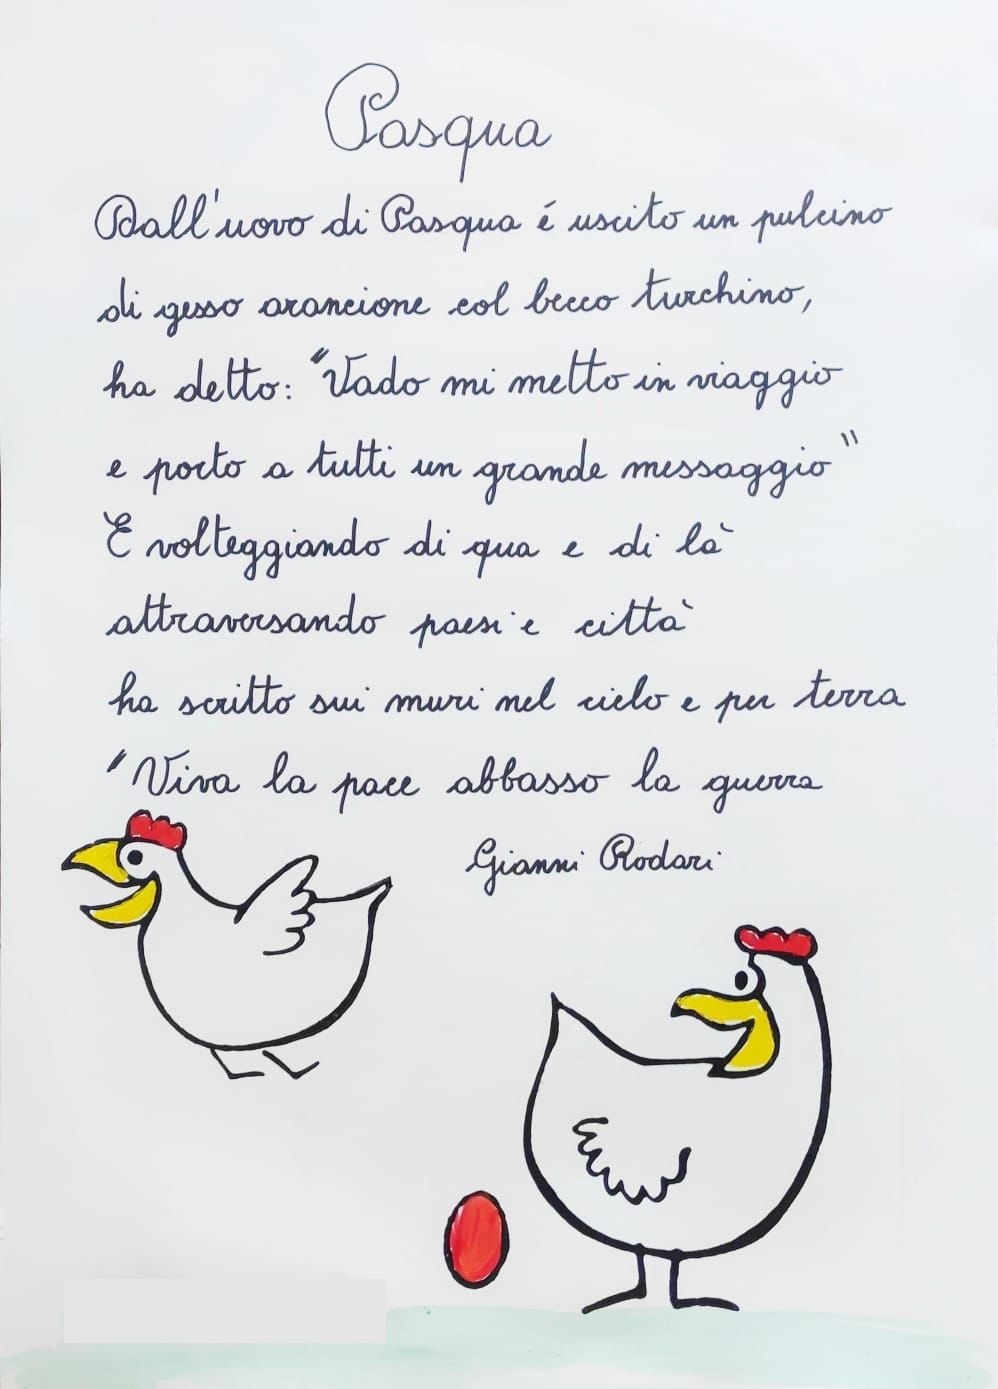 Pasqua
Dall'uovo di Pasqua é uscito un pulcino
di gesso arancione col becco turchino,
ha detto: "Vado mi metto in viaggio
e porto a tutti un grande messaggio"
E volteggiando di qua e di là
attraversando paesi e città
ha scritto sui muri nel cielo e per terra
"Viva la pace abbasso la guerra
Gianni Rodari